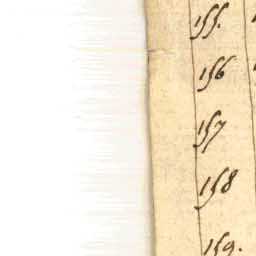 155.
156
157
158
159.